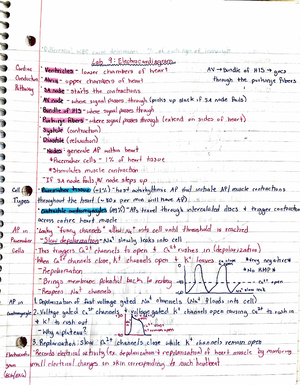 Lab 9: Electrocardiogram
Cardiac Conduction Pathway
Ventricles - lower chambers of heart
AV → Bundle of HIS → goes through the purkinje fibers
Atria - upper chambers of heart
SA node - starts the contractions
AV node - where signal passes through (picks up slack if SA node fails)
Bundle of HIS - where signal passes through
Purkinje Fibers - where signal passes through (extend on sides of heart)
Systole (contraction)
Diastole (relaxation)
Nodes: generate AP within heart
*Pacemaker cells - 1% of heart tissue
*Stimulates muscle contraction
If SA node fails AV node steps up
Cell Types
Pacemaker tissue (~1%): host autorhythmic AP that initiate AP/muscle contractions
throughout the heart (~80x per min will have AP)
Contractile myocardiocytes (99%) APs travel through intercalated discs & trigger contraction
across entire heart muscle
AP in Pacemaker Cells
Leaky "funny channels" allow Na⁺ into cell until threshold is reached
Slow depolarization - Na⁺ slowly leaks into cell
This triggers Ca²⁺ channels to open & Ca²⁺ rushes in (depolarization)
When Ca²⁺ channels close, K⁺ channels open & K⁺ leaves
Repolarization
Brings membrane potential back to
Reopens Na⁺ channels
*No RMP*
Ca²⁺ open
AP in
1. Depolarization of fast voltage gated Na⁺ channels (Na⁺ floods into cell)
2. Voltage gated Ca²⁺ channels & voltage gated K⁺ channels open causing Ca²⁺ to rush in
& K⁺ to rush out
Why a plateau?
3. Repolarization slow Ca²⁺ channels close while K⁺ channels remain open
Electrocardiogram
(ECG/EKG)
Records electrical activity (i.e. depolarization & repolarization) of heart muscle by
small electrical changes on skin corresponding to each heartbeat